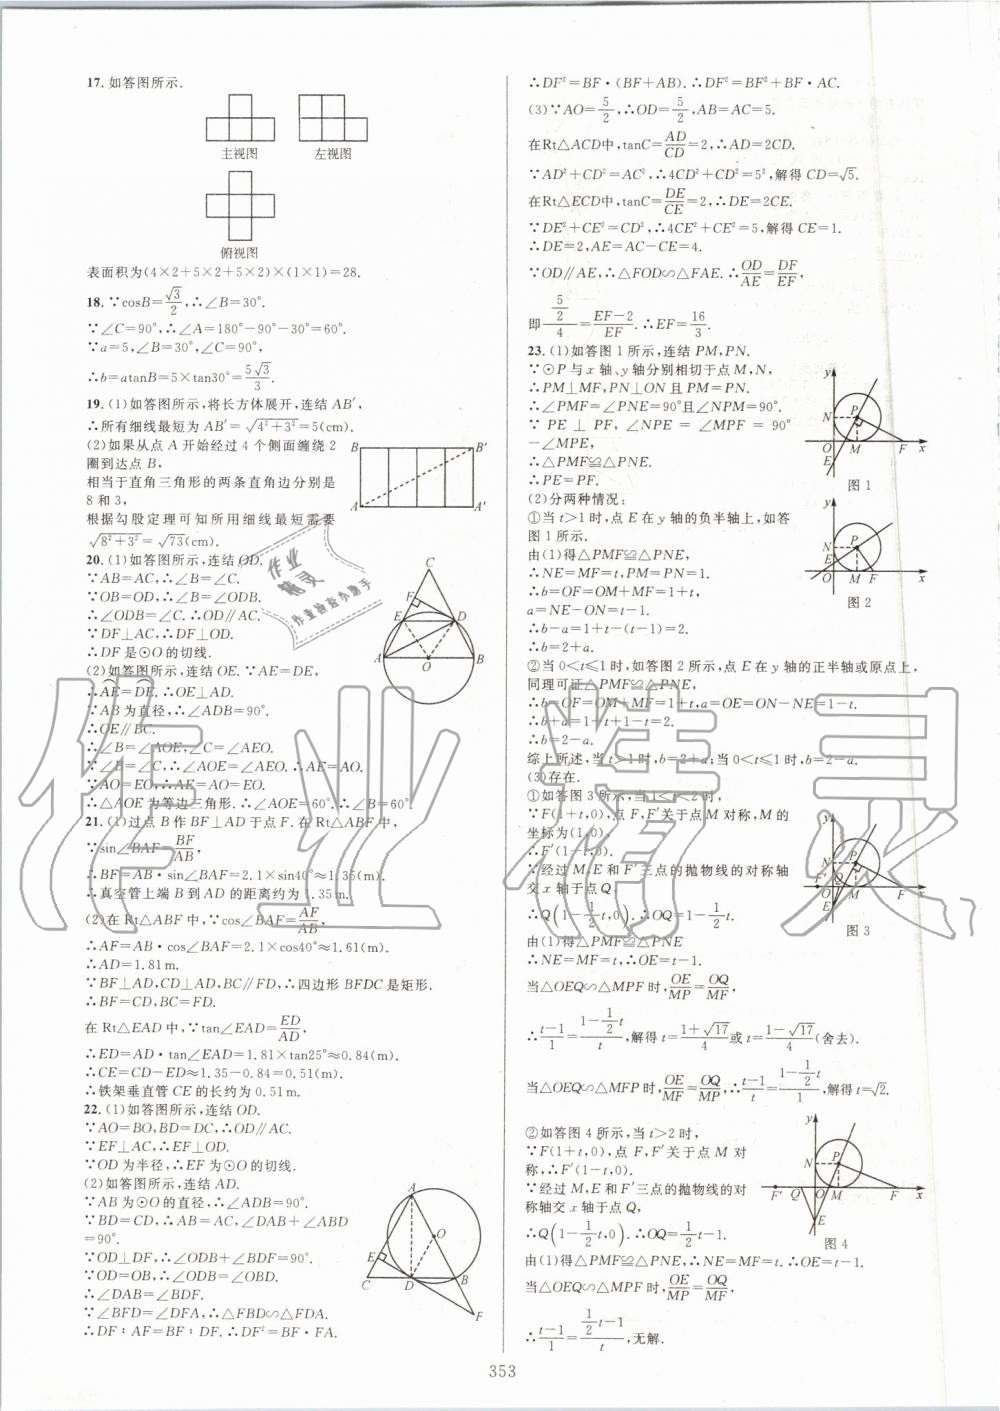 17. 如答图所示.
主视图
左视图
俯视图
表面积为(4×2+5×2+5×2)×(1×1)=28.
18. ∵cosB=√3/2,∴∠B=30°.
∵∠C=90°,∴∠A=180°-90°-30°=60°.
∵a=5,∠B=30°,∠C=90°,
∴b=atanB=5×tan30°=5√3/3.
19. (1)如答图所示,将长方体展开,连结AB′,
∴所有细线最短为AB′=√(4²+3²)=5(cm).
(2)如果从点A开始经过4个侧面缠绕2
圈到达点B,
相当于直角三角形的两条直角边分别是
8和3,
根据勾股定理可知所用细线最短需要
√(8²+3²)=√73(cm).
B B′
A A′
20. (1)如答图所示,连结OD.
∵AB=AC,∴∠B=∠C.
∵OB=OD,∴∠B=∠ODB.
∴∠ODB=∠C.∴OD∥AC.
∵DF⊥AC,∴DF⊥OD.
∴DF是⊙O的切线.
(2)如答图所示,连结OE.∵AE=DE,
∴AE=DE.∴OE⊥AD.
∵AB为直径,∴∠ADB=90°.
∴OE∥BC.
∴∠B=∠AOE,∠C=∠AEO.
∵∠B=∠C,∴∠AOE=∠AEO.∴AE=AO.
∵AO=EO,∴AE=AO=EO.
∴△AOE为等边三角形.∴∠AOE=60°.∴∠B=60°.
C
F
E D
A O B
21. (1)过点B作BF⊥AD于点F.在Rt△ABF中,
∵sin∠BAF=BF/AB,
∴BF=AB·sin∠BAF=2.1×sin40°≈1.35(m).
∴真空管上端B到AD的距离约为1.35m.
(2)在Rt△ABF中,∵cos∠BAF=AF/AB,
∴AF=AB·cos∠BAF=2.1×cos40°≈1.61(m).
∴AD=1.81m.
∵BF⊥AD,CD⊥AD,BC∥FD,∴四边形BFDC是矩形.
∴BF=CD,BC=FD.
在Rt△EAD中,∵tan∠EAD=ED/AD,
∴ED=AD·tan∠EAD=1.81×tan25°≈0.84(m).
∴CE=CD-ED≈1.35-0.84=0.51(m).
∴铁架垂直管CE的长约为0.51m.
22. (1)如答图所示,连结OD.
∵AO=BO,BD=DC,∴OD∥AC.
∵EF⊥AC,∴EF⊥OD.
∵OD为半径,∴EF为⊙O的切线.
(2)如答图所示,连结AD.
∵AB为⊙O的直径,∴∠ADB=90°.
∵BD=CD,∴AB=AC,∠DAB+∠ABD
=90°.
∵OD⊥DF,∴∠ODB+∠BDF=90°.
∵OD=OB,∴∠ODB=∠OBD.
∴∠DAB=∠BDF.
∵∠BFD=∠DFA,∴△FBD∽△FDA.
∴DF∶AF=BF∶DF.∴DF²=BF·FA.
A
O
E
C D B
F
∴DF²=BF·(BF+AB).∴DF²=BF²+BF·AC.
(3)∵AO=5/2,∴OD=5/2,AB=AC=5.
在Rt△ACD中,tanC=AD/CD=2,∴AD=2CD.
∵AD²+CD²=AC²,∴4CD²+CD²=5²,解得CD=√5.
在Rt△ECD中,tanC=DE/CE=2,∴DE=2CE.
∵DE²+CE²=CD²,∴4CE²+CE²=5,解得CE=1.
∴DE=2,AE=AC-CE=4.
∵OD∥AE,∴△FOD∽△FAE.∴OD/AE=DF/EF,
即(5/2)/4=(EF-2)/EF.∴EF=16/3.
23. (1)如答图1所示,连结PM,PN.
∵⊙P与x轴、y轴分别相切于点M,N,
∴PM⊥MF,PN⊥ON且PM=PN.
∴∠PMF=∠PNE=90°且∠NPM=90°.
∵PE⊥PF,∠NPE=∠MPF=90°
-∠MPE,
∴△PMF≌△PNE.
∴PE=PF.
y
N P
O M F x
E
图1
(2)分两种情况:
①当t>1时,点E在y轴的负半轴上,如答
图1所示.
由(1)得△PMF≌△PNE,
∴NE=MF=t,PM=PN=1.
∴b=OF=OM+MF=1+t,
a=NE-ON=t-1.
∴b-a=1+t-(t-1)=2.
∴b=2+a.
y
N P
E
O M F x
图2
②当0<t≤1时,如答图2所示,点E在y轴的正半轴或原点上,
同理可证△PMF≌△PNE,
∴b=OF=OM+MF=1+t,a=OE=ON-NE=1-t.
∴b+a=1+t+1-t=2.
∴b=2-a.
综上所述,当t>1时,b=2+a;当0<t≤1时,b=2-a.
(3)存在.
①如答图3所示,当1<t<2时,
∵F(1+t,0),点F,F′关于点M对称,M的
坐标为(1,0),
∴F′(1-t,0).
∵经过M,E和F′三点的抛物线的对称轴
交x轴于点Q,
∴Q(1-1/2t,0).∴OQ=1-1/2t.
由(1)得△PMF≌△PNE
∴NE=MF=t,∴OE=t-1.
当△OEQ∽△MPF时,OE/MP=OQ/MF,
∴(t-1)/1=(1-1/2t)/t,解得t=(1+√17)/4或t=(1-√17)/4(舍去).
当△OEQ∽△MFP时,OE/MF=OQ/MP,∴(t-1)/t=(1-1/2t)/1,解得t=√2.
y
N P
F′ Q M F x
E
图3
②如答图4所示,当t>2时,
∵F(1+t,0),点F,F′关于点M对
称,∴F′(1-t,0).
∵经过M,E和F′三点的抛物线的对
称轴交x轴于点Q,
∴Q(1-1/2t,0).∴OQ=1/2t-1.
由(1)得△PMF≌△PNE,∴NE=MF=t.∴OE=t-1.
当△OEQ∽△MPF时,OE/MP=OQ/MF,
∴(t-1)/1=(1/2t-1)/t,无解.
y
N P
F′ Q O M F x
E
图4
353
作业精灵
作业
精灵
作业检查小助手